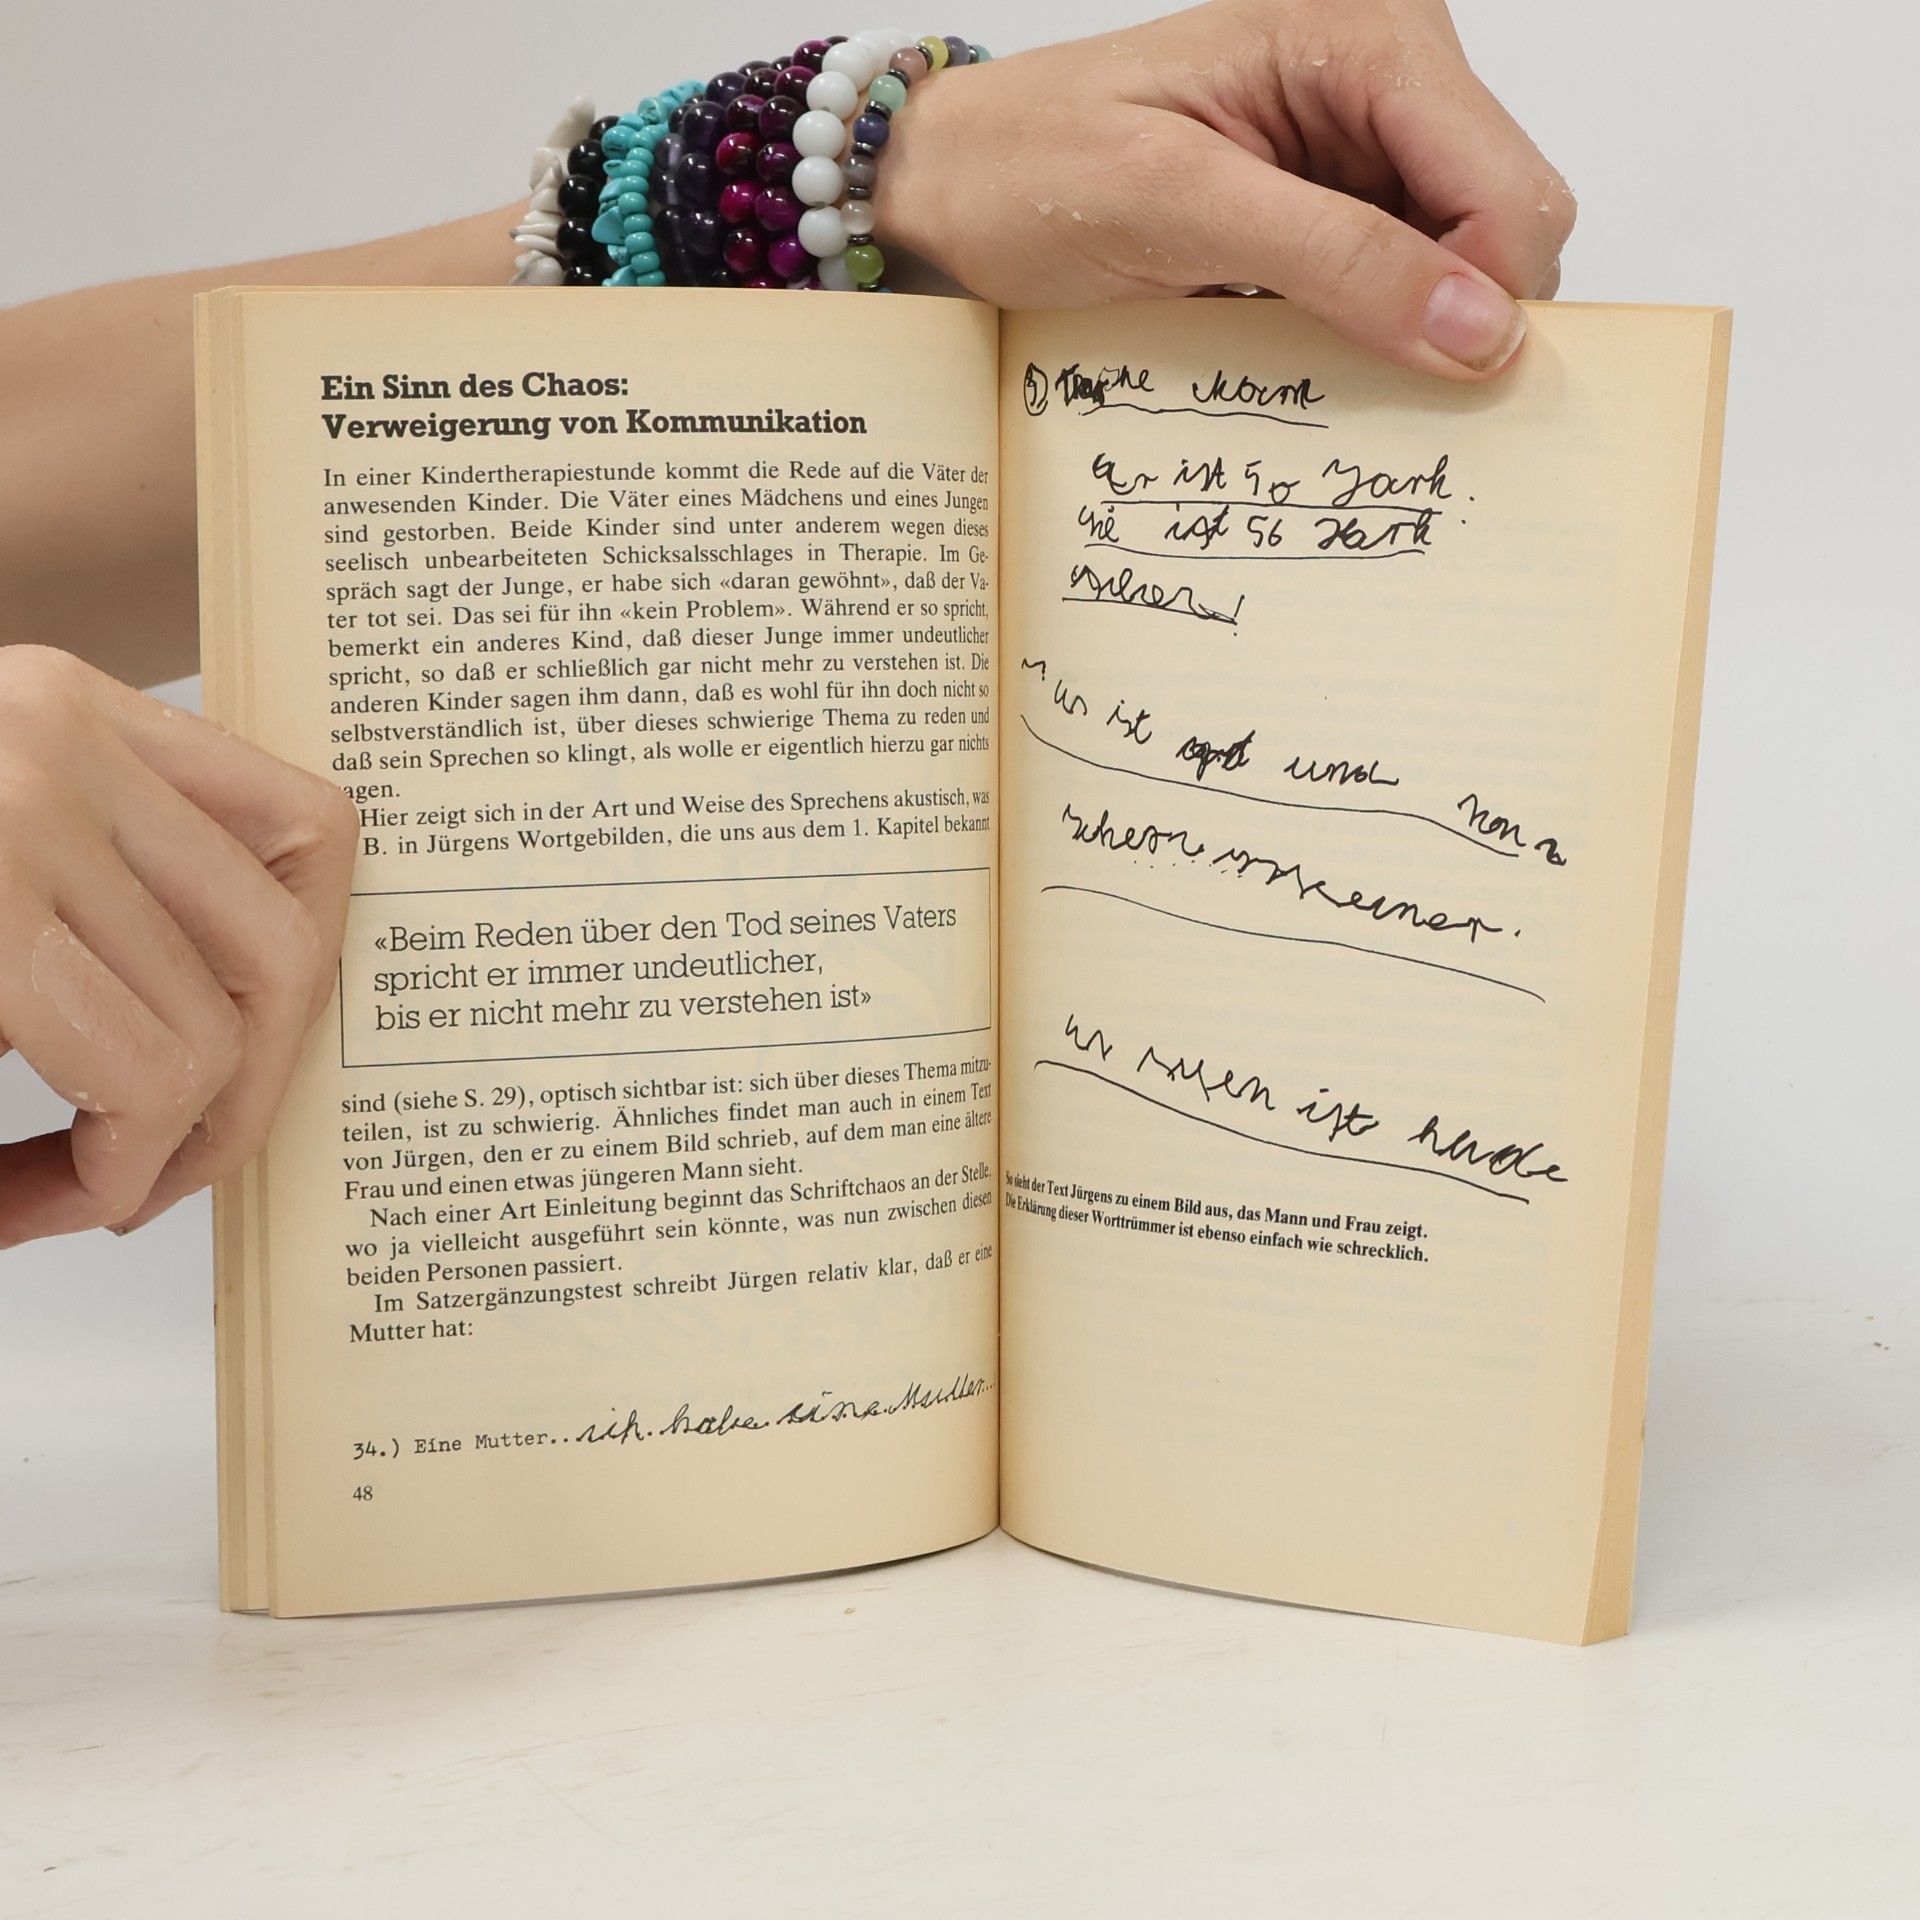 Ein Sinn des Chaos:
Verweigerung von Kommunikation
In einer Kindertherapiestunde kommt die Rede auf die Väter der
anwesenden Kinder. Die Väter eines Mädchens und eines Jungen
sind gestorben. Beide Kinder sind unter anderem wegen dieses
seelisch unbearbeiteten Schicksalsschlages in Therapie. Im Ge-
spräch sagt der Junge, er habe sich «daran gewöhnt», daß der Va-
ter tot sei. Das sei für ihn «kein Problem». Während er so spricht,
bemerkt ein anderes Kind, daß dieser Junge immer undeutlicher
spricht, so daß er schließlich gar nicht mehr zu verstehen ist. Die
anderen Kinder sagen ihm dann, daß es wohl für ihn doch nicht so
selbstverständlich ist, über dieses schwierige Thema zu reden und
daß sein Sprechen so klingt, als wolle er eigentlich hierzu gar nichts
agen.
Hier zeigt sich in der Art und Weise des Sprechens akustisch, was
B. in Jürgens Wortgebilden, die uns aus dem 1. Kapitel bekannt
«Beim Reden über den Tod seines Vaters
spricht er immer undeutlicher,
bis er nicht mehr zu verstehen ist»
sind (siehe S. 29), optisch sichtbar ist: sich über dieses Thema mitzu-
teilen, ist zu schwierig. Ähnliches findet man auch in einem Text
von Jürgen, den er zu einem Bild schrieb, auf dem man eine ältere
Frau und einen etwas jüngeren Mann sieht.
Nach einer Art Einleitung beginnt das Schriftchaos an der Stelle,
wo ja vielleicht ausgeführt sein könnte, was nun zwischen diesen
beiden Personen passiert.
Im Satzergänzungstest schreibt Jürgen relativ klar, daß er eine
Mutter hat:
34.) Eine Mutter... ich habe eine Mutter...
48
Er ist 50 Jark.
ist 56
ist und
ist
So sieht der Text Jürgens zu einem Bild aus, das Mann und Frau zeigt.
Die Erklärung dieser Worttrümmer ist ebenso einfach wie schrecklich.